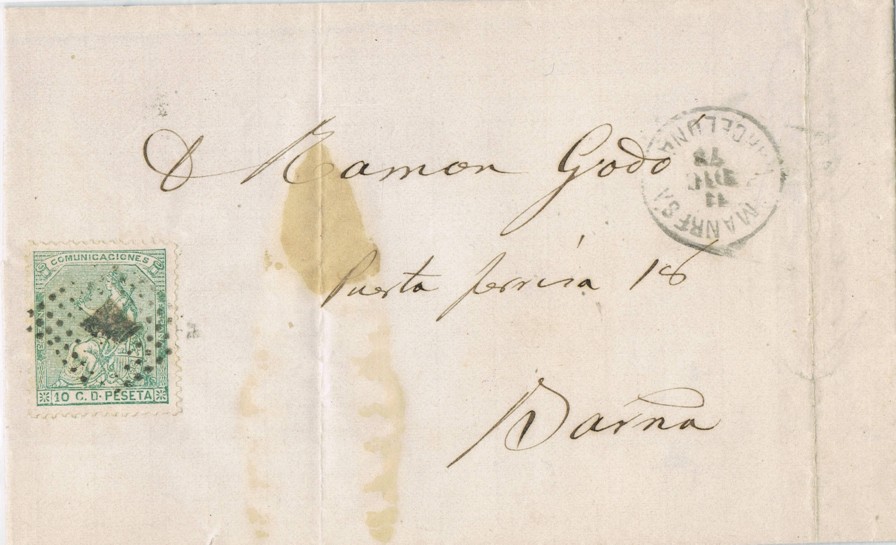 D Ramon Godo
Puerta ferrisa 18
Barna
MANRESA
BARCELONA
11
DIC
73
COMUNICACIONES
10 C. D. PESETA